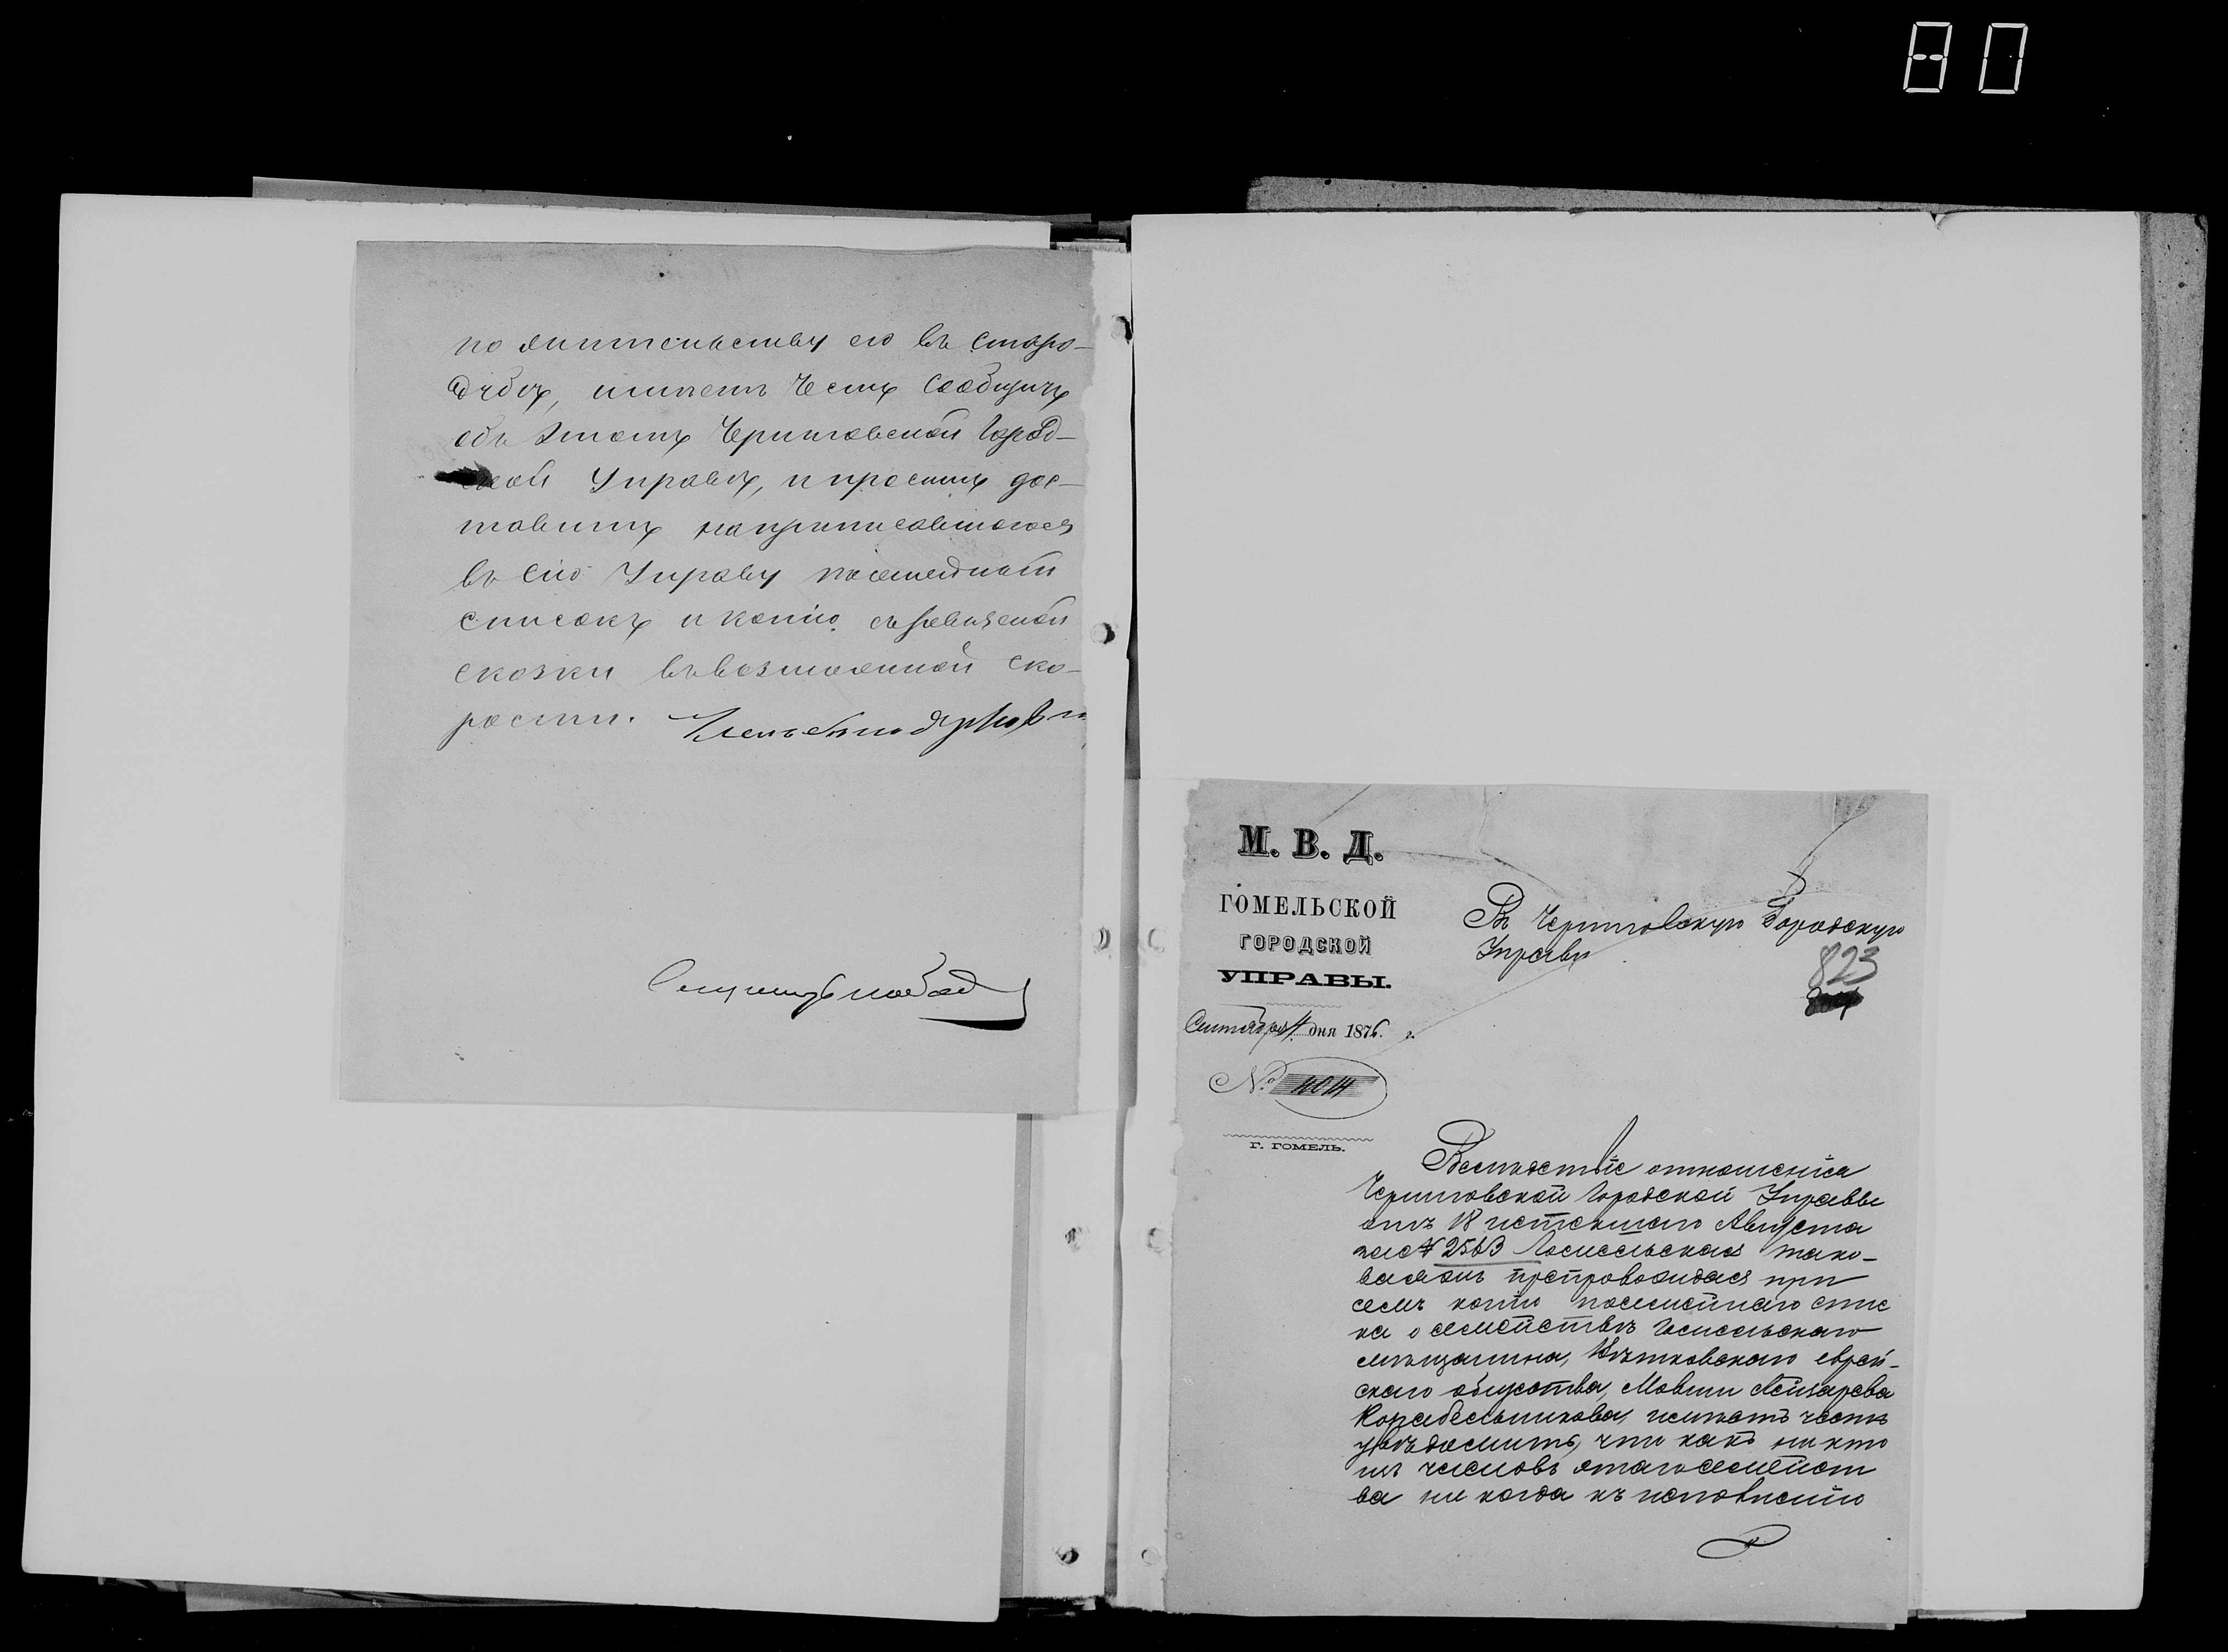 80
по жительству его въ Старо-
дубѣ, имѣетъ честь сообщить
объ этомъ Черниговской Город-
ской Управѣ, и проситъ дос-
тавить на приписавшагося
въ сію Управу посемейный
списокъ и копію съ ревизской
сказки въ возможной ско-
рости. Членъ
М. В. Д.
ГОМЕЛЬСКОЙ
ГОРОДСКОЙ
УПРАВЫ.
Сентября 4 дня 1876 г.
№
Г. ГОМЕЛЬ.
Въ Черниговскую Городскую
Управу
823
Вслѣдствіе отношенія
Черниговской Городской Управы
отъ 18 истекшаго Августа
за № 2563 Гомельская тако-
вая жъ препровождая при
семъ копію посемейнаго спис
ка о семействѣ Гомельскаго
мѣщанина, Вѣтковскаго еврей-
скаго общества, Мовши Лейзарова
Корабельникова, имѣетъ честь
увѣдомить, что какъ ни кто
изъ членовъ этаго семейст
ва ни когда къ исполненію